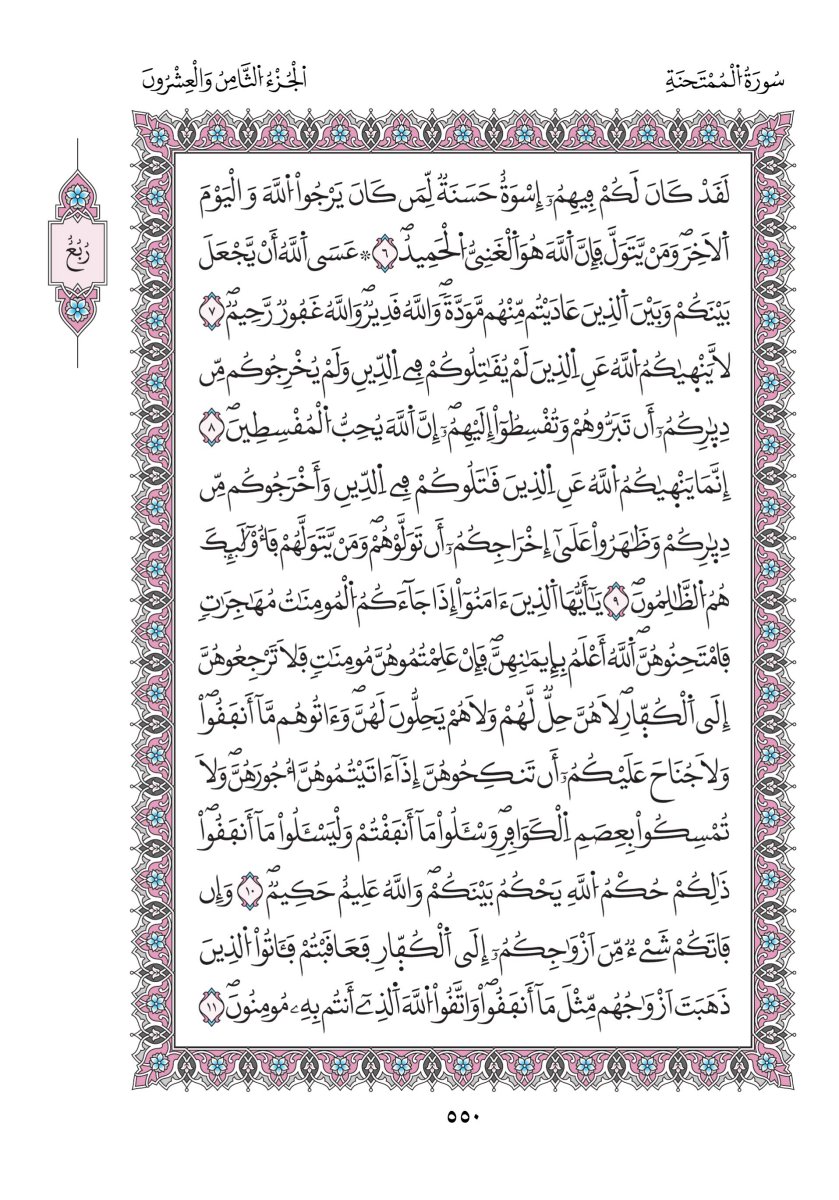 سُورَةُ اُ۬لْمُمْتَحنَةِ
اَ۬لْجُزْءُ اُ۬لثَّامِنُ وَالْعِشْرُونَ
رُبُعُ
لَقَدْ كَانَ لَكُمْ فِيهِمُۥٓ إِسْوَةٌ حَسَنَةٌ لِّمَن كَانَ يَرْجُواْ اُ۬للَّهَ وَالْيَوْمَ
اَ۬لَاخِرَۖ وَمَنْ يَّتَوَلَّ فَإِنَّ اَ۬للَّهَ هُوَ اَ۬لْغَنِيُّ اُ۬لْحَمِيدُۖ ٦ ۞ عَسَى اَ۬للَّهُ أَنْ يَّجْعَلَ
بَيْنَكُمْ وَبَيْنَ اَ۬لذِينَ عَادَيْتُم مِّنْهُم مَّوَدَّةٗۖ وَاللَّهُ قَدِيرٞۖ وَاللَّهُ غَفُورٞ رَّحِيمٞۖ ٧
لَّا يَنْهٜيٰكُمُ اُ۬للَّهُ عَنِ اِ۬لذِينَ لَمْ يُقَٰتِلُوكُمْ فِي اِ۬لدِّينِ وَلَمْ يُخْرِجُوكُم مِّن
دِيٰ۪رِكُمُۥٓ أَن تَبَرُّوهُمْ وَتُقْسِطُوٓاْ إِلَيْهِمُۥٓۖ إِنَّ اَ۬للَّهَ يُحِبُّ اُ۬لْمُقْسِطِينَۖ ٨
إِنَّمَا يَنْهٜيٰكُمُ اُ۬للَّهُ عَنِ اِ۬لذِينَ قَٰتَلُوكُمْ فِي اِ۬لدِّينِ وَأَخْرَجُوكُم مِّن
دِيٰ۪رِكُمْ وَظَٰهَرُواْ عَلَىٰٓ إِخْرَاجِكُمُۥٓ أَن تَوَلَّوْهُمْۖ وَمَنْ يَّتَوَلَّهُمْ فَأُوْلَٰٓئِكَ
هُمُ اُ۬لظَّٰلِمُونَۖ ٩ يَٰٓأَيُّهَا اَ۬لذِينَ ءَامَنُوٓاْ إِذَا جَآءَكُمُ اُ۬لْمُومِنَٰتُ مُهَٰجِرَٰتٖ
فَامْتَحِنُوهُنَّۖ اَ۬للَّهُ أَعْلَمُ بِإِيمَٰنِهِنَّۖ فَإِنْ عَلِمْتُمُوهُنَّ مُومِنَٰتٖ فَلَا تَرْجِعُوهُنَّ
إِلَى اَ۬لْكُفّ۪ارِۖ لَا هُنَّ حِلّٞ لَّهُمْ وَلَا هُمْ يَحِلُّونَ لَهُنَّۖ وَءَاتُوهُم مَّآ أَنفَقُواْۖ
وَلَا جُنَاحَ عَلَيْكُمُۥٓ أَن تَنكِحُوهُنَّ إِذَآ ءَاتَيْتُمُوهُنَّ أُجُورَهُنَّۖ وَلَا
تُمْسِكُواْ بِعِصَمِ اِ۬لْكَوَافِرِۖ وَسْـَٔلُواْ مَآ أَنفَقْتُمْ وَلْيَسْـَٔلُواْ مَآ أَنفَقُواْۖ
ذَٰلِكُمْ حُكْمُ اُ۬للَّهِ يَحْكُمُ بَيْنَكُمْۖ وَاللَّهُ عَلِيمٌ حَكِيمٞۖ ١٠ وَإِن
فَاتَكُمْ شَےْءٞ مِّنَ اَزْوَٰجِكُمُۥٓ إِلَى اَ۬لْكُفّ۪ارِ فَعَاقَبْتُمْ فَـَٔاتُواْ اُ۬لذِينَ
ذَهَبَتَ اَزْوَٰجُهُم مِّثْلَ مَآ أَنفَقُواْۖ وَاتَّقُواْ اُ۬للَّهَ اَ۬لذِےٓ أَنتُم بِهِۦ مُومِنُونَۖ ١١
٥٥٠